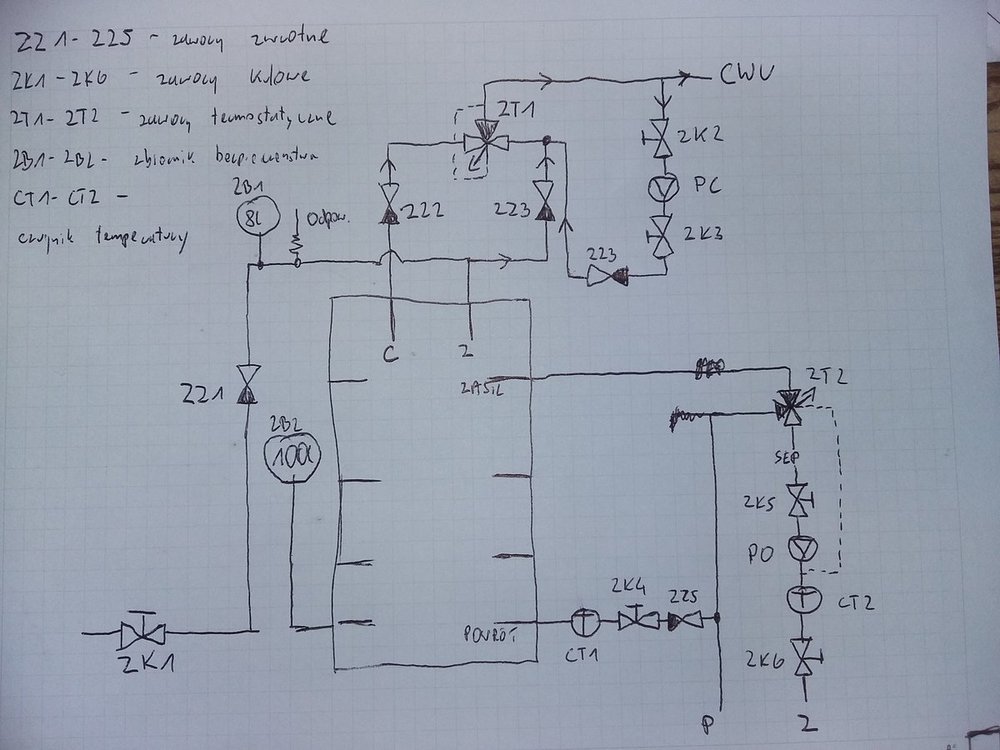 ZZ1-ZZ5 - zawory zwrotne
ZK1-ZK6 - zawory kulowe
ZT1-ZT2 - zawory termostatyczne
ZB1-ZB2 - zbiornik bezpieczeństwa
CT1-CT2 -
czujnik temperatury
CWU
ZT1
ZK2
ZB1
8l
Odpow.
PC
ZZ2
ZZ3
ZK3
ZZ3
C
Z
ZASIL
ZT2
ZZ1
ZB2
100l
SEP
ZK5
PO
ZK4
ZZ5
CT2
POWRÓT
CT1
ZK1
ZK6
P
Z